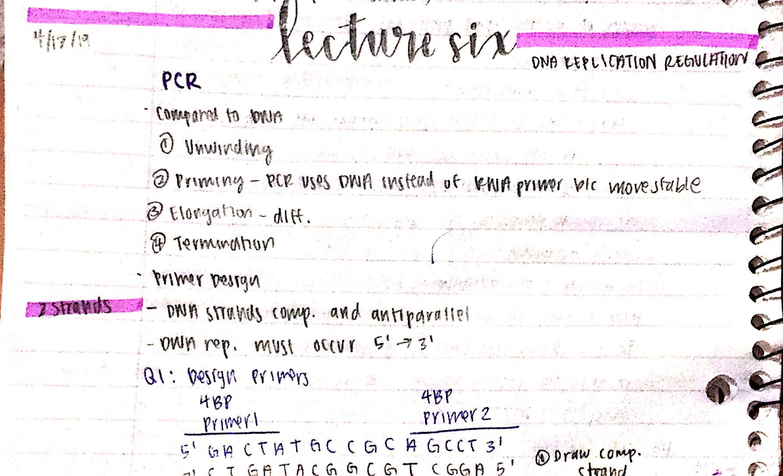 lecture six
4/17/19
DNA REPLICATION REGULATION
PCR
· Compared to DNA
① Unwinding
② Priming - PCR uses DNA instead of RNA primer b/c more stable
③ Elongation - diff.
④ Termination
· Primer Design
2 strands
- DNA strands comp. and antiparallel
- DNA rep. must occur 5' → 3'
Q1: Design Primers
4BP 4BP
Primer1 Primer 2
5' GACTATGCCGCAGCCT 3'
① Draw comp.
strand
CTGATACGGCGTCGGA 5'